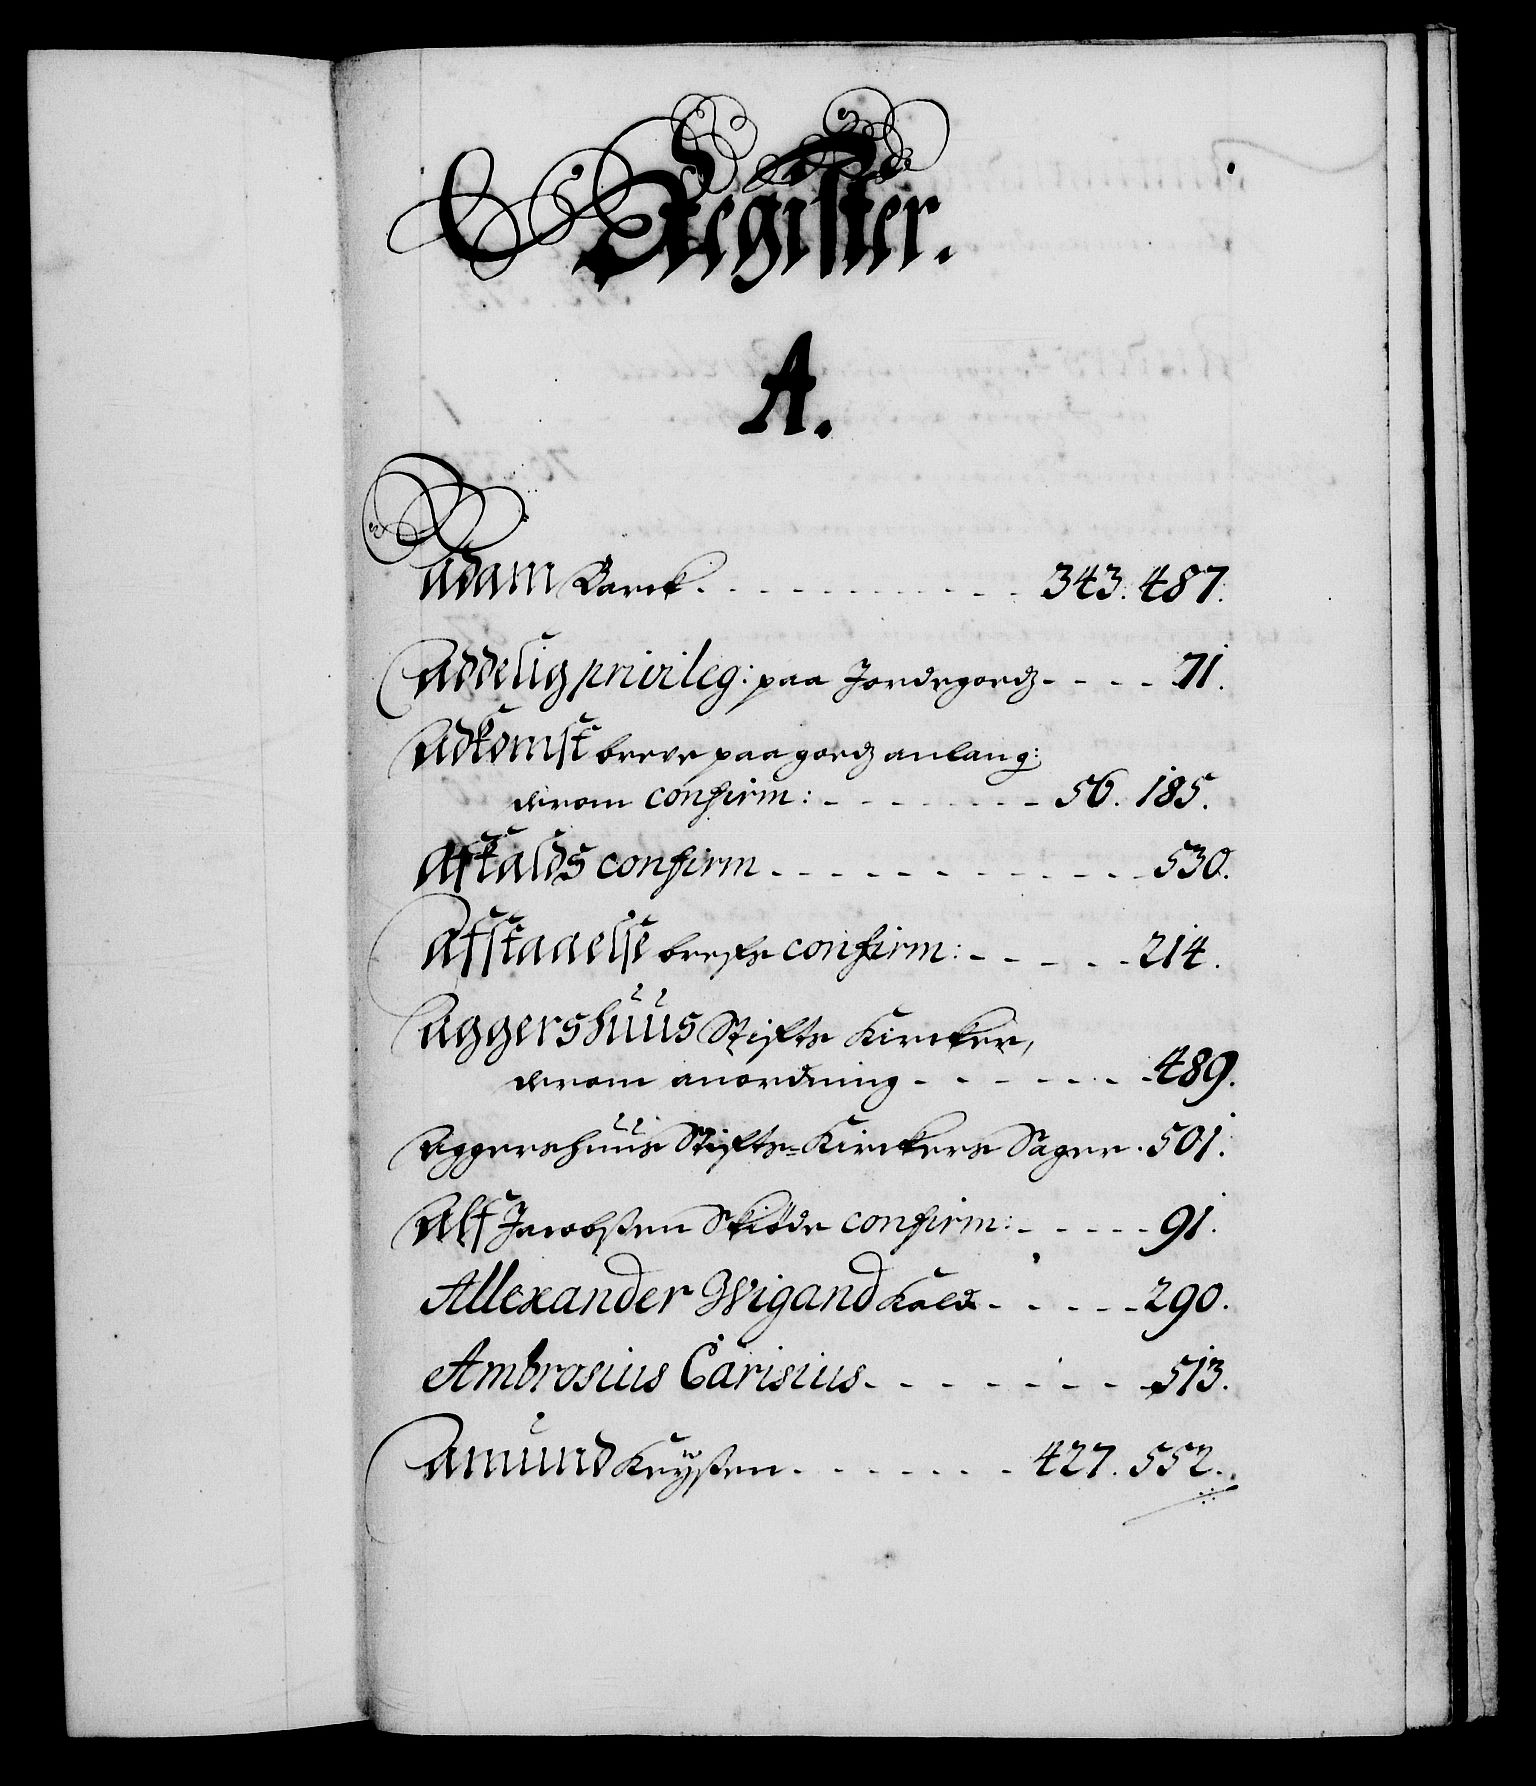 Register.
A.
Adam Barck. 343. 487.
Addelig privileg: paa Jordegodz 71.
Adkomst breve paa godz anlang:
derom confirm: 56. 185.
Afkalds confirm 530.
Afstaaelse brefs confirm: 214.
Aggershuus Stifts Kircker,
derom anordning 489.
Aggershuus Stifts-Kirckers Sager. 501.
Alf Jacobsen Skiöde confirm: 91.
Allexander Wigand Kald 290.
Ambrosius Carisius 513.
Amund 427. 552.